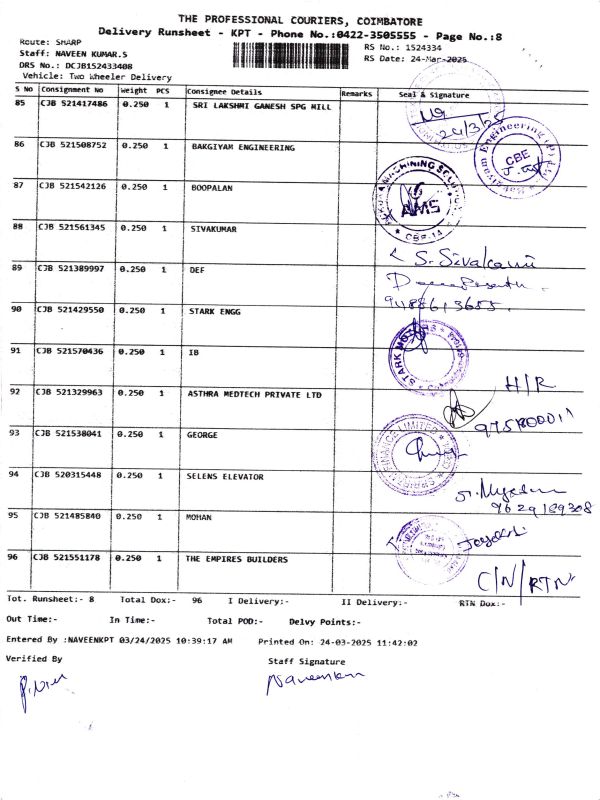 THE PROFESSIONAL COURIERS, COIMBATORE
Delivery Runsheet - KPT - Phone No.:0422-3505555 - Page No.:8
Route: SHARP
RS No.: 1524334
Staff: NAVEEN KUMAR.S
RS Date: 24-Mar-2025
DRS No.: DCJB152433408
Vehicle: Two Wheeler Delivery
S No Consignment No Weight PCS Consignee Details Remarks Seal & Signature
85 CJB 521417486 0.250 1 SRI LAKSHMI GANESH SPG MILL
24/3/25
86 CJB 521508752 0.250 1 BAKGIYAM ENGINEERING
CBE
87 CJB 521542126 0.250 1 BOOPALAN
AMS
CBE-14
88 CJB 521561345 0.250 1 SIVAKUMAR
S. Sivakumar
89 CJB 521389997 0.250 1 DEF
9488613655
90 CJB 521429550 0.250 1 STARK ENGG
STARK
91 CJB 521570436 0.250 1 IB
H/R
92 CJB 521329963 0.250 1 ASTHRA MEDTECH PRIVATE LTD
93 CJB 521538041 0.250 1 GEORGE
FINANCE LIMITED
94 CJB 520315448 0.250 1 SELENS ELEVATOR
95 CJB 521485840 0.250 1 MOHAN
96 CJB 521551178 0.250 1 THE EMPIRES BUILDERS
C/N/RTN
Tot. Runsheet:- 8 Total Dox:- 96 I Delivery:- II Delivery:- RTN Dox:-
Out Time:- In Time:- Total POD:- Delvy Points:-
Entered By :NAVEENKPT 03/24/2025 10:39:17 AM Printed On: 24-03-2025 11:42:02
Verified By Staff Signature
Naveenkumar